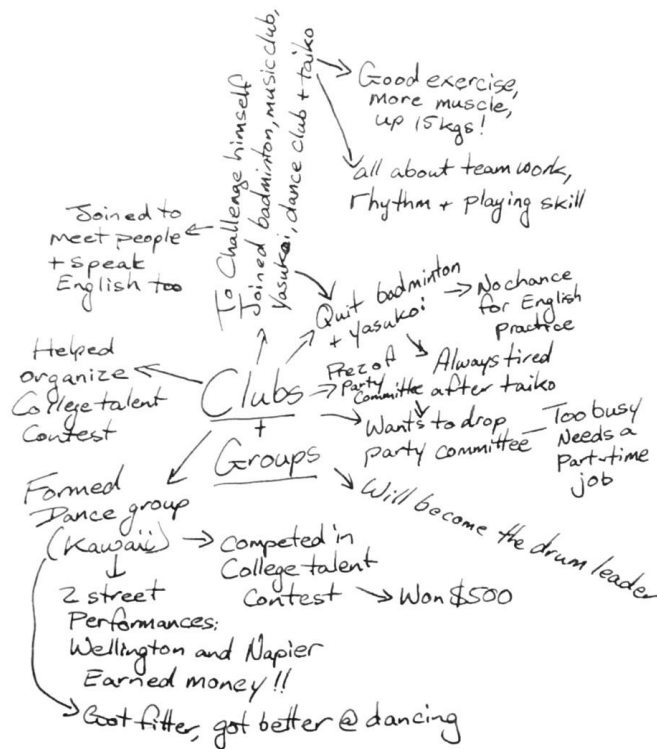 To Challenge himself
Joined badminton, music club,
Yasukoi, dance club + taiko
Good exercise,
more muscle,
up 15kgs!
all about teamwork,
rhythm + playing skill
Joined to
meet people
+ speak
English too
Quit badminton
+ Yasukoi
No chance
for English
practice
Always tired
after taiko
Helped
organize
College talent
Contest
Clubs
+
Groups
Prez of
Party
Committee
Wants to drop
party committee
Too busy
Needs a
Part-time
job
Will become the drum leader
Formed
Dance group
(Kawaii)
competed in
College talent
Contest
Won $500
2 street
Performances:
Wellington and Napier
Earned money!!
Got fitter, got better @ dancing